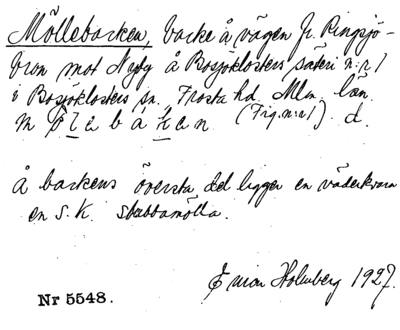 Möllebacken, backe å vägen fr. Ringsjö-
bron mot Nyby å Bosjöklosters säteri n:r 1
i Bosjöklosters sn, Frosta hd. Mlm. län.
m ø l e b a k e n (Fig. n:r 1). d.
å backens översta del ligger en väderkvarn
en s.k. stubbamölla.
Holmberg 1927.
Nr 5548.